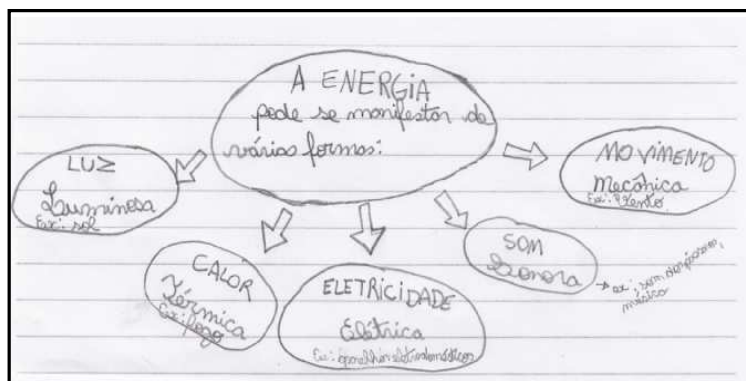 A ENERGIA
pode se manifestar de
várias formas:
LUZ
Luminosa
Ex: sol
CALOR
Térmica
Ex: fogo
ELETRICIDADE
Elétrica
Ex: aparelhos eletrodomésticos
SOM
Sonora
→ ex: som dos pássaros,
música
MOVIMENTO
Mecânica
Ex: Vento